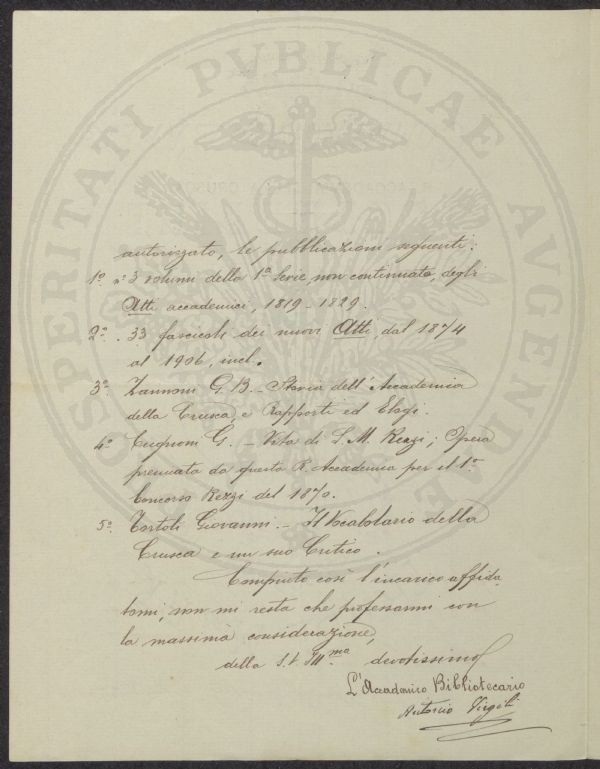 PROSPERITATI PVBLICAE AVGENDAE
autorizzato, le pubblicazioni seguenti:
1º. nº 3 volumi della 1ª Serie, non continuata, degli
Atti accademici, 1819-1829.
2º. 33 fascicoli dei nuovi Atti, dal 1874
al 1906, incl.
3º. Zannoni G. B. - Storia dell'Accademia
della Crusca, e Rapporti ed Elogi.
4º. Cugnoni G. - Vita di L. M. Rezzi; Opera
premiata da questa R. Accademia per il 1º
Concorso Rezzi del 1870.
5º. Tortoli Giovanni. - Il Vocabolario della
Crusca e un suo Critico.
Compiuto così l'incarico affida
tomi, non mi resta che professarmi con
la massima considerazione,
della S. V. Ill.ma devotissimo
L'Accademico Bibliotecario
Antonio Virgili